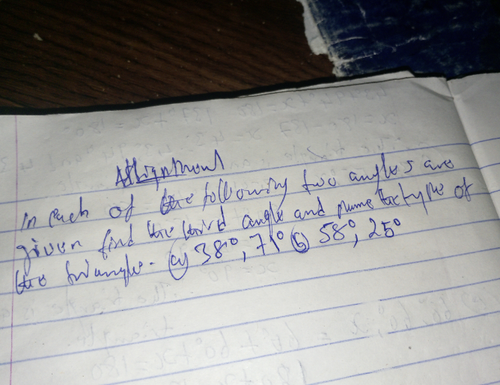 Assignment
In each of the following two angles are
given find the third angle and name the type of
the triangle. (a) 38°, 71° (b) 58°, 25°